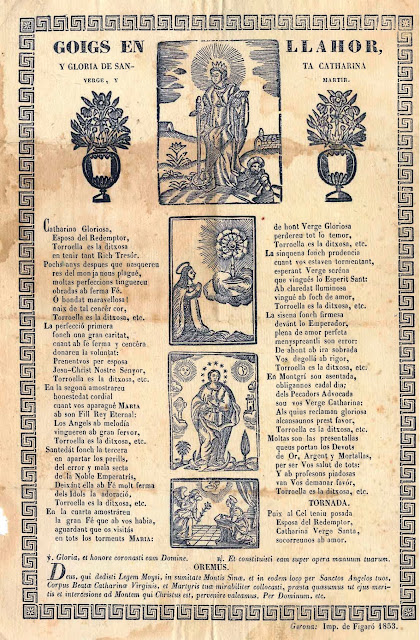 GOIGS EN LLAHOR,
Y GLORIA DE SANTA CATHARINA
VERGE, Y MARTIR.
Catharina Gloriosa,
Esposa del Redemptor,
Torroella es la ditxosa
en tenir tant Rich Tresór.
Pochs anys despues que nasquereu
res del mon ja nous plagué,
moltas perfeccions tinguereu
obradas ab ferma Fé.
O bondat maravellosa!
naix de tal cenrér cor,
Torroella es la ditxosa, etc.
La perfecció primera
fonch una gran caritat,
cuant ab fe ferma y encéra
donareu la voluntat:
Prenentvos per esposa
Jesu-Christ Nostre Senyor,
Torroella es la ditxosa, etc.
En la segona amostrareu
honestedad cordial
cuant vos aparagué MARIA
ab son Fill Rey Eternal:
Los Angels ab melodía
vingueren ab gran fervor,
Torroella es la ditxosa, etc.
Santedát fonch la tercera
en apartar los perills,
del error y mala secta
de la Noble Emperatris,
Deixánt ella ab Fé molt ferma
dels Idols la adoració.
Torroella es la ditxosa, etc.
En la cuarta amostrareu
la gran Fé que ab vos habia,
aguardant que os visitás
en tots los torments MARIA:
de hont Verge Gloriosa
perdereu tot lo temor,
Torroella es la ditxosa, etc.
La sinquena fonch prudencia
cuant vos estaven tormentant,
esperant Verge seréna
que vingués lo Esperit Sant:
Ab claredat lluminosa
vingué ab foch de amor,
Torroella es la ditxosa, etc.
La sisena fonch firmesa
devánt lo Emperador,
plena de amor perfeta
menyspreantli son error:
De ahont ab ira sobrada
Vos degollá ab rigor,
Torroella es la ditxosa, etc.
En Montgrí sou asentada,
obligannos cadal dia;
dels Pecadors Advocada
sou vos Verge Catharina:
Als quius reclaman gloriosa
alcansaunos prest favor,
Torroella es la ditxosa, etc.
Moltas son las presentallas
queus portan los Devots
de Or, Argent y Mortallas,
per ser Vos salut de tots:
Y ab profesons piadosas
van Vos demanar favór,
Torroella es la ditxosa, etc.
TORNADA.
Puix al Cel teniu posada
Esposa del Redemptor,
Catharina Verge Santa,
socorreunos ab amor.
℣. Gloria, et honore coronasti eam Domine. ℟. Et constituisti eam super opera manuum tuarum.
OREMUS.
Deus, qui dedisti Legem Moysi, in sumitate Montis Sinæ, et in eodem loco per Sanctos Angelos tuos,
Corpus Beatæ Catharinæ Virginis, et Martyris tuæ mirabiliter collocasti, præsta quæsumus ut ejus meri-
tis et intercesione ad Montem qui Christus est, pervenire valeamus. Per Dominum, etc.
Gerona: Imp. de Figaró 1853.